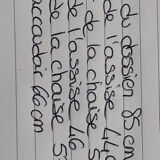 du dossier 85 cm
de l'assise
de la chaise
de l'assise 46
de la chaise
66 cm